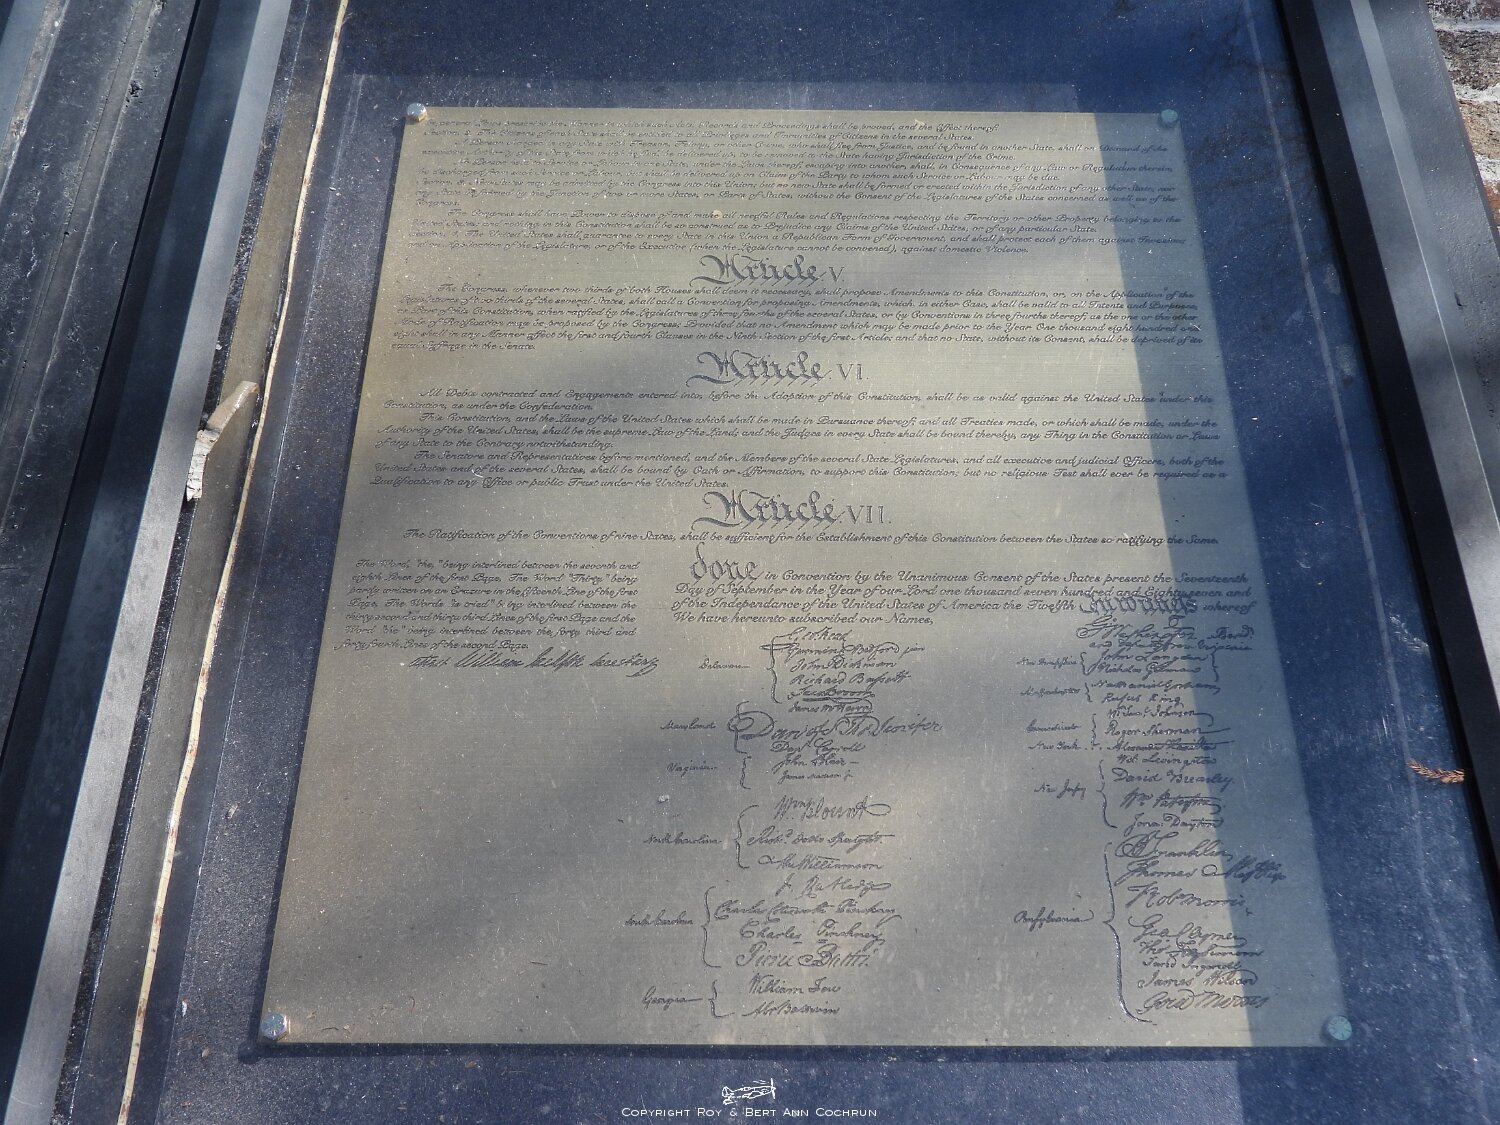 the Manner in which such Acts, Records and Proceedings shall be proved, and the Effect thereof.
Section. 2. The Citizens of each State shall be entitled to all Privileges and Immunities of Citizens in the several States.
A Person charged in any State with Treason, Felony, or other Crime, who shall flee from Justice, and be found in another State, shall on Demand of the
to be removed to the State having Jurisdiction of the Crime.
No Person held to Service or Labour in one State, under the Laws thereof, escaping into another, shall, in Consequence of any Law or Regulation therein,
be discharged from such Service or Labour, but shall be delivered up on Claim of the Party to whom such Service or Labour may be due.
Section. 3. New States may be admitted by the Congress into this Union; but no new State shall be formed or erected within the Jurisdiction of any other State; nor
any State be formed by the Junction of two or more States, or Parts of States, without the Consent of the Legislatures of the States concerned as well as of the
Congress.
The Congress shall have Power to dispose of and make all needful Rules and Regulations respecting the Territory or other Property belonging to the
United States; and nothing in this Constitution shall be so construed as to Prejudice any Claims of the United States, or of any particular State.
Section. 4. The United States shall guarantee to every State in this Union a Republican Form of Government, and shall protect each of them against Invasion;
and on Application of the Legislature, or of the Executive (when the Legislature cannot be convened), against domestic Violence.
Article. V.
The Congress, whenever two thirds of both Houses shall deem it necessary, shall propose Amendments to this Constitution, or, on the Application of the
Legislatures of two thirds of the several States, shall call a Convention for proposing Amendments, which, in either Case, shall be valid to all Intents and Purposes,
as Part of this Constitution, when ratified by the Legislatures of three fourths of the several States, or by Conventions in three fourths thereof, as the one or the other
Mode of Ratification may be proposed by the Congress; Provided that no Amendment which may be made prior to the Year One thousand eight hundred and
eight shall in any Manner affect the first and fourth Clauses in the Ninth Section of the first Article; and that no State, without its Consent, shall be deprived of its
equal Suffrage in the Senate.
Article. VI.
All Debts contracted and Engagements entered into, before the Adoption of this Constitution, shall be as valid against the United States under this
Constitution, as under the Confederation.
This Constitution, and the Laws of the United States which shall be made in Pursuance thereof; and all Treaties made, or which shall be made, under the
Authority of the United States, shall be the supreme Law of the Land; and the Judges in every State shall be bound thereby, any Thing in the Constitution or Laws
of any State to the Contrary notwithstanding.
The Senators and Representatives before mentioned, and the Members of the several State Legislatures, and all executive and judicial Officers, both of the
United States and of the several States, shall be bound by Oath or Affirmation, to support this Constitution; but no religious Test shall ever be required as a
Qualification to any Office or public Trust under the United States.
Article. VII.
The Ratification of the Conventions of nine States, shall be sufficient for the Establishment of this Constitution between the States so ratifying the Same.
The Word, "the," being interlined between the seventh and
eighth Lines of the first Page, The Word "Thirty" being
partly written on an Erazure in the fifteenth Line of the first
Page, The Words "is tried" being interlined between the
thirty second and thirty third Lines of the first Page and the
Word "the" being interlined between the forty third and
forty fourth Lines of the second Page.
Attest William Jackson Secretary
done in Convention by the Unanimous Consent of the States present the Seventeenth
Day of September in the Year of our Lord one thousand seven hundred and Eighty seven and
of the Independance of the United States of America the Twelfth In witness whereof
We have hereunto subscribed our Names,
Delaware
Geo: Read
Gunning Bedford jun
John Dickinson
Richard Bassett
Jaco: Broom
Maryland
James McHenry
Dan of St Thos Jenifer
Danl Carroll
Virginia
John Blair—
James Madison Jr.
North Carolina
Wm Blount
Richd. Dobbs Spaight.
Hu Williamson
South Carolina
J. Rutledge
Charles Cotesworth Pinckney
Charles Pinckney
Pierce Butler.
Georgia
William Few
Abr Baldwin
Go. Washington Presidt
and deputy from Virginia
New Hampshire
John Langdon
Nicholas Gilman
Massachusetts
Nathaniel Gorham
Rufus King
Connecticut
Wm. Saml. Johnson
Roger Sherman
New York . . . Alexander Hamilton
New Jersey
Wil: Livingston
David Brearley.
Wm. Paterson.
Jona: Dayton
Pensylvania
B Franklin
Thomas Mifflin
Robt Morris
Geo. Clymer
Thos. FitzSimons
Jared Ingersoll
James Wilson
Gouv Morris
COPYRIGHT ROY & BERT ANN COCHRUN